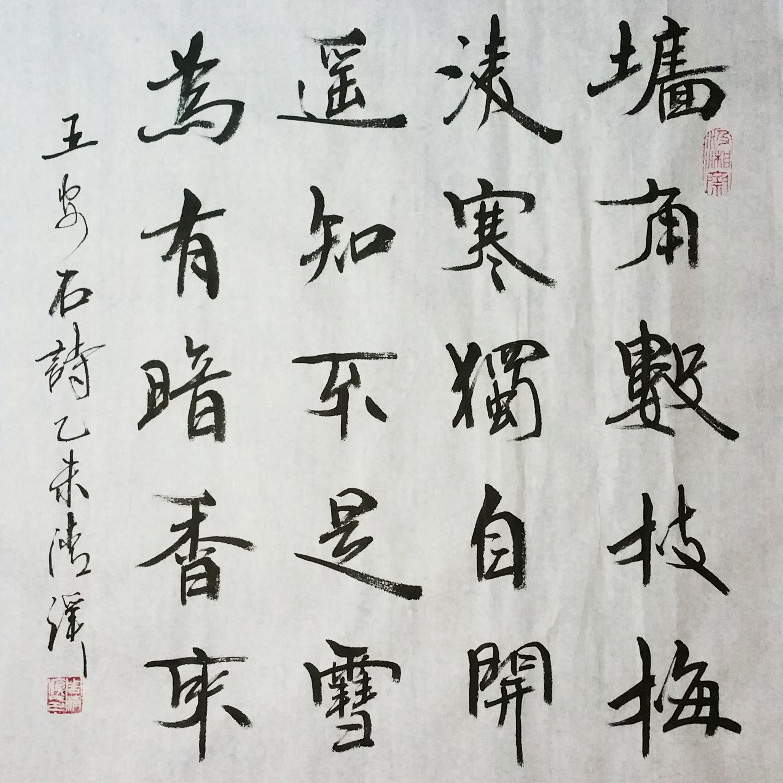 墻角數枝梅
淩寒獨自開
遥知不是雪
為有暗香來
王安石詩乙未清澤